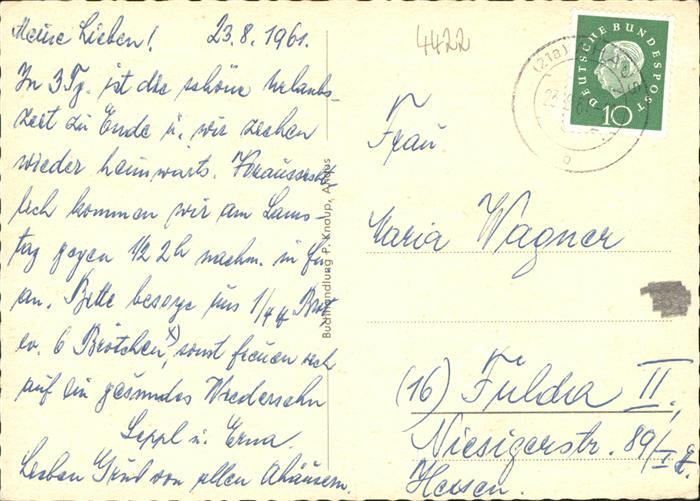 Meine Lieben! 23.8.1961.
In 3 Tg. ist die schöne Urlaubs-
zeit zu Ende u. wir ziehen
wieder heimwärts. Voraussicht-
lich kommen wir am Sams-
tag gegen 1/2 2 h nachm. in Fu
an. Bitte besorge uns 1/4 Brot
ev. 6 Brötchen x), sonst freuen sich
auf ein gesundes Wiedersehn
Seppl u. Erna.
Lieben Gruß von allen Ahäusern.
Buchhandlung P. Knaup, Ahaus
4422
DEUTSCHE BUNDESPOST
10
(21a)
b
Frau
Maria Wagner
(16) Fulda II,
Niesigerstr. 89/I
Hessen.